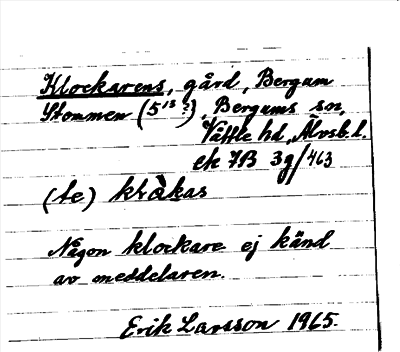 Klockarens, gård, Bergum
Stommen (5¹³?), Bergums sn,
Vättle hd, Älvsb. l.
ek 7B 3g/463
(te) klàkas
Någon klockare ej känd
av meddelaren.
Erik Larsson 1965.